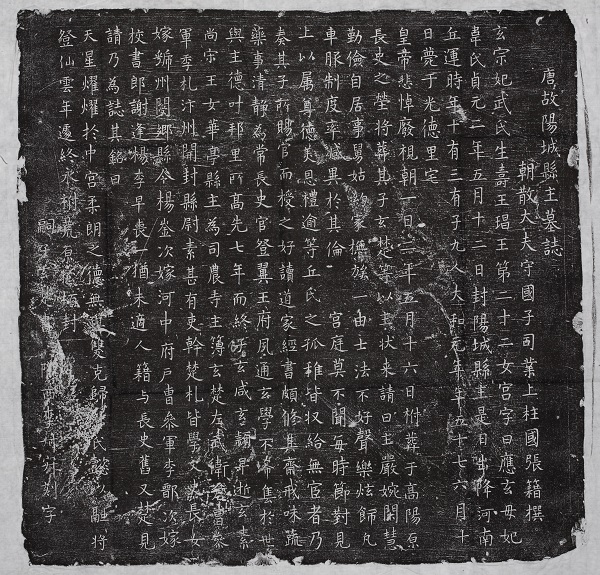 唐故陽城縣主墓誌
朝散大夫守國子司業上柱國張籍撰
玄宗妃武氏生壽王瑁王第二十二女宮字曰應玄母妃
韋氏貞元二年五月十二日封陽城縣主是日出降河南
丘運時年十有三有子九人大和元年年五十七六月十
日薨于光德里宅
皇帝悲悼廢視朝一日二年五月十六日祔葬于高陽原
長史之塋將葬其子玄楚等以主狀來請曰主嚴婉閑慧
勤儉自居事舅姑 家 族一由士法不好聲樂炫飾凡
車服制度率減異於其倫 宮庭莫不聞每時節對見
上以屬尊德 恩禮逾等丘氏之孤稚皆収給無宦者乃
奏其子所賜官而授之好讀道家經書頗脩其齋戒味蔬
藥事清靜為常長史官登翼王府夙通玄學不 焦於世
與主德叶邦里所高先七年而終 玄咸玄 昇逝玄素
尚宗王女華亭縣主為司農寺主簿玄楚左 衛 曹參
軍季札汴州開封縣尉素甚有吏幹楚札皆學文 長女
嫁虢州閿鄉縣令楊崟次嫁河中府戶曹參軍李鄑次嫁
校書郎謝蓬楊李早喪一猶未適人籍与長史舊又楚見
請乃為誌其銘曰
天星燿燿於中宮柔朗之德無 雙克歸 氏懿 融將
登仙雲年遽終永樹荒原 封
嗣子玄 刻字